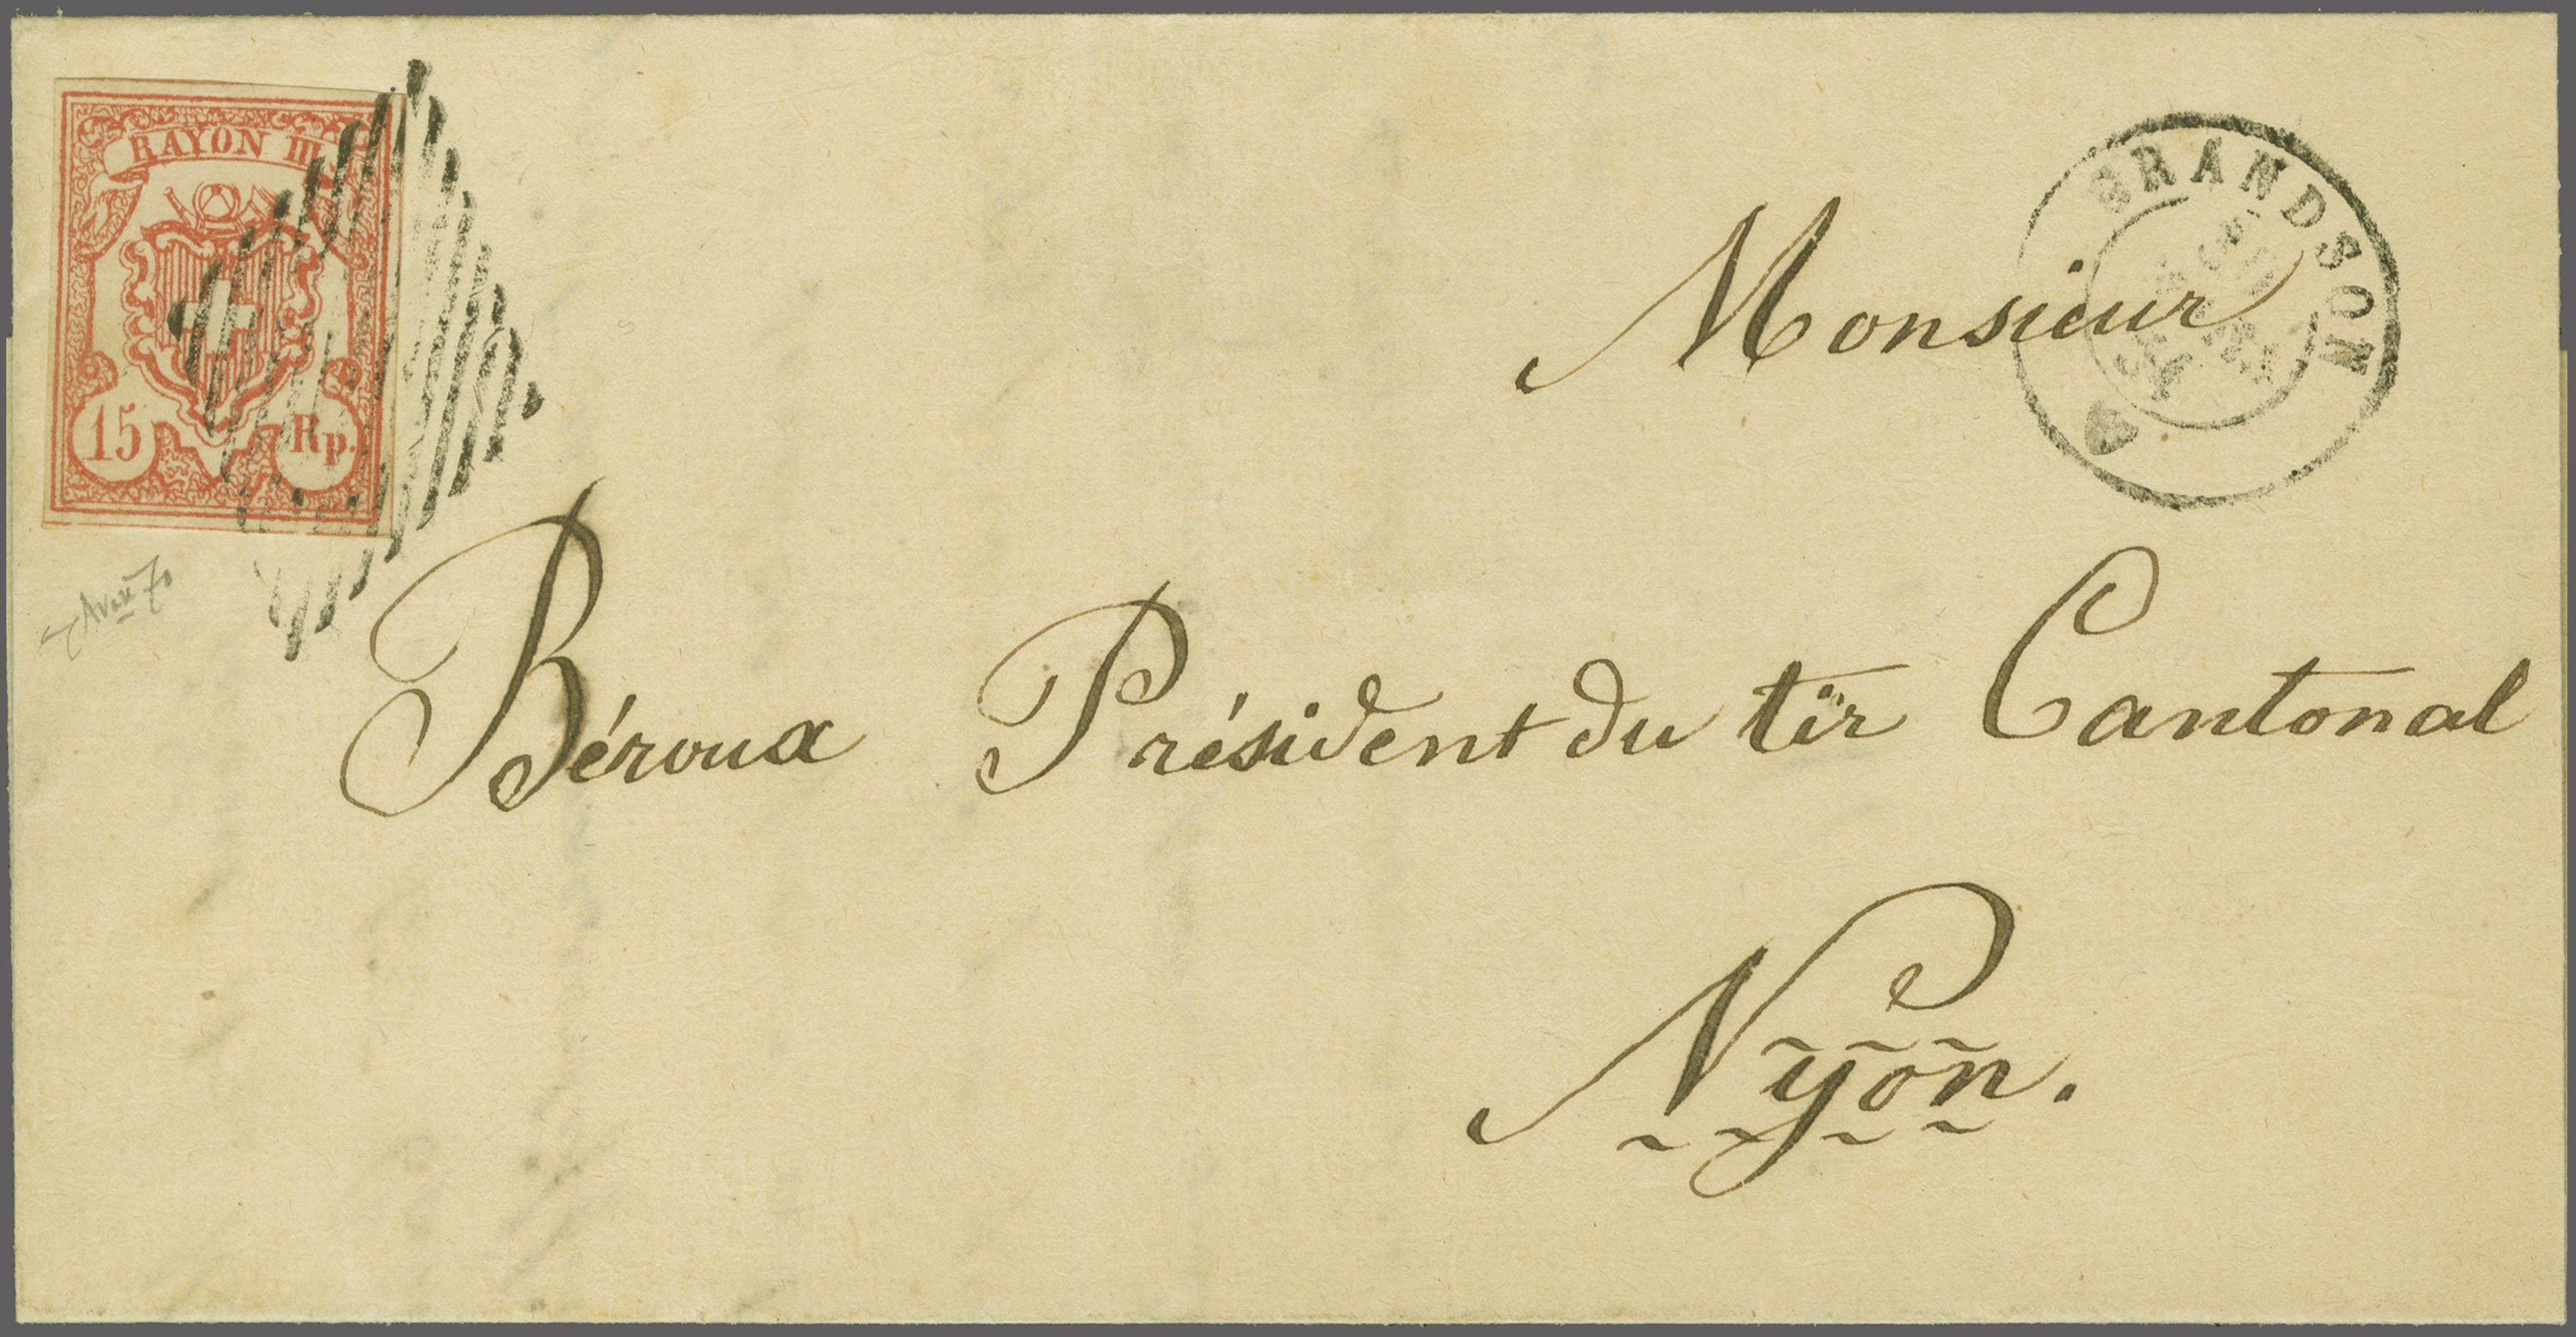 RAYON III
15 Rp.
GRANDSON
Monsieur
Béroux Président du tir Cantonal
Nyon.